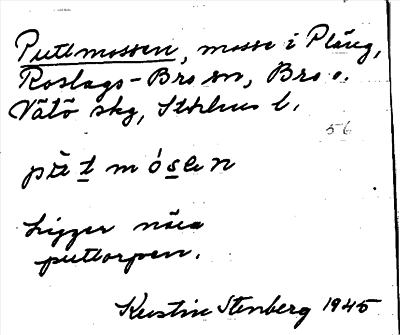 Puttmossen, mosse i Pläng,
Roslags-Bro sn, Bro o.
Vätö skg, Sthlms l.
56
pɯ̀t mósen
Ligger nära
puttorpen.
Kerstin Stenberg 1945